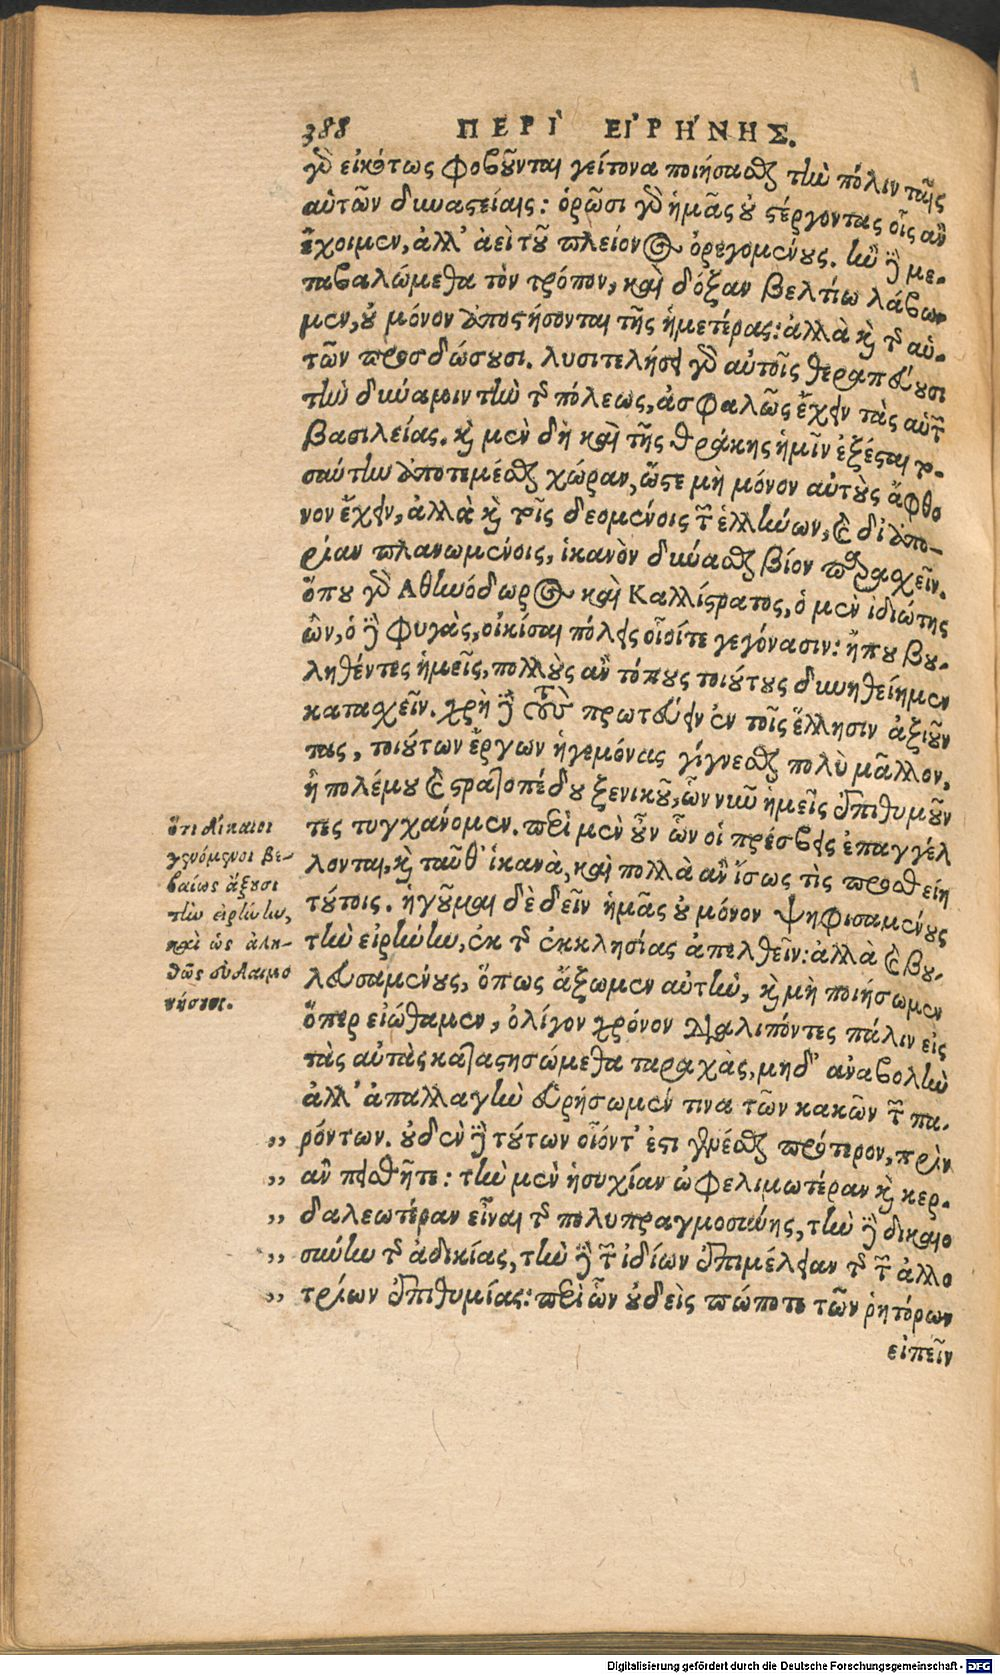 388 ΠΕΡῚ ΕἸΡΉΝΗΣ.
γὰρ εἰκότως φοβοῦνται γείτονα ποιήσασθαι τὴν πόλιν ταῖς
αὑτῶν δυναστείαις: ὁρῶσι γὰρ ἡμᾶς οὐ στέργοντας οἷς ἂν
ἔχοιμεν, ἀλλ' ἀεὶ τοῦ πλείονος ὀρεγομένους. ἢν δὲ με-
ταβαλώμεθα τὸν τρόπον, καὶ δόξαν βελτίω λάβω-
μεν, οὐ μόνον ἀποστήσονται τῆς ἡμετέρας: ἀλλὰ καὶ τῆς αὑ-
τῶν προσδώσουσι. λυσιτελήσει γὰρ αὐτοῖς θεραπεύουσι
τὴν δύναμιν τὴν τῆς πόλεως, ἀσφαλῶς ἔχειν τὰς αὑτῶν
βασιλείας. καὶ μὲν δὴ καὶ τῆς Θράκης ἡμῖν ἐξέσται το-
σαύτην ἀποτεμέσθαι χώραν, ὥστε μὴ μόνον αὐτοὺς ἄφθο
νον ἔχειν, ἀλλὰ καὶ τοῖς δεομένοις τῶν ἑλλήνων, καὶ δι' ἀπο-
ρίαν πλανωμένοις, ἱκανὸν δύνασθαι βίον παρασχεῖν.
ὅπου γὰρ Ἀθηνόδωρος καὶ Καλλίστρατος, ὁ μὲν ἰδιώτης
ὢν, ὁ δὲ φυγὰς, οἰκίσαι πόλεις οἷοίτε γεγόνασιν: ἦπου βου-
ληθέντες ἡμεῖς, πολλοὺς ἂν τόπους τοιούτους δυνηθείημεν
κατασχεῖν. χρὴ δὲ τοὺς πρωτεύειν ἐν τοῖς ἕλλησιν ἀξιοῦν
τας, τοιούτων ἔργων ἡγεμόνας γίγνεσθαι πολὺ μᾶλλον,
ἢ πολέμου καὶ στρατοπέδου ξενικοῦ, ὧν νῦν ἡμεῖς ἐπιθυμοῦν
τες τυγχάνομεν. περὶ μὲν οὖν ὧν οἱ πρέσβεις ἐπαγγέλ
λονται, καὶ ταῦθ' ἱκανὰ, καὶ πολλὰ ἂν ἴσως τὶς προσθείη
τούτοις. ἡγοῦμαι δὲ δεῖν ἡμᾶς οὐ μόνον ψηφισαμένους
τὴν εἰρήνην, ἐκ τῆς ἐκκλησίας ἀπελθεῖν: ἀλλὰ καὶ βου-
λευσαμένους, ὅπως ἄξωμεν αὐτὴν, καὶ μὴ ποιήσωμεν
ὅπερ εἰώθαμεν, ὀλίγον χρόνον διαλιπόντες πάλιν εἰς
τὰς αὐτὰς καταστησώμεθα ταραχὰς, μηδ' ἀναβολὴν
ἀλλ' ἀπαλλαγὴν εὑρήσωμέν τινα τῶν κακῶν τῶν πα-
,, ρόντων. οὐδὲν δὲ τούτων οἷόντ' ἐστὶ γενέσθαι πρότερον, πρὶν
,, ἂν πεισθῆτε: τὴν μὲν ἡσυχίαν ὠφελιμωτέραν καὶ κερ-
,, δαλεωτέραν εἶναι τῆς πολυπραγμοσύνης, τὴν δὲ δικαιο
,, σύνην τῆς ἀδικίας, τὴν δὲ τῶν ἰδίων ἐπιμέλειαν τῆς τῶν ἀλλο
,, τρίων ἐπιθυμίας: περὶ ὧν οὐδεὶς πώποτε τῶν ῥητόρων
εἰπεῖν
ὅτι δίκαιοι
γενόμενοι βε-
βαίως ἄξουσι
τὴν εἰρήνην,
καὶ ὡς ἀλη-
θῶς εὐδαιμο
νήσουσι.
Digitalisierung gefördert durch die Deutsche Forschungsgemeinschaft - DFG